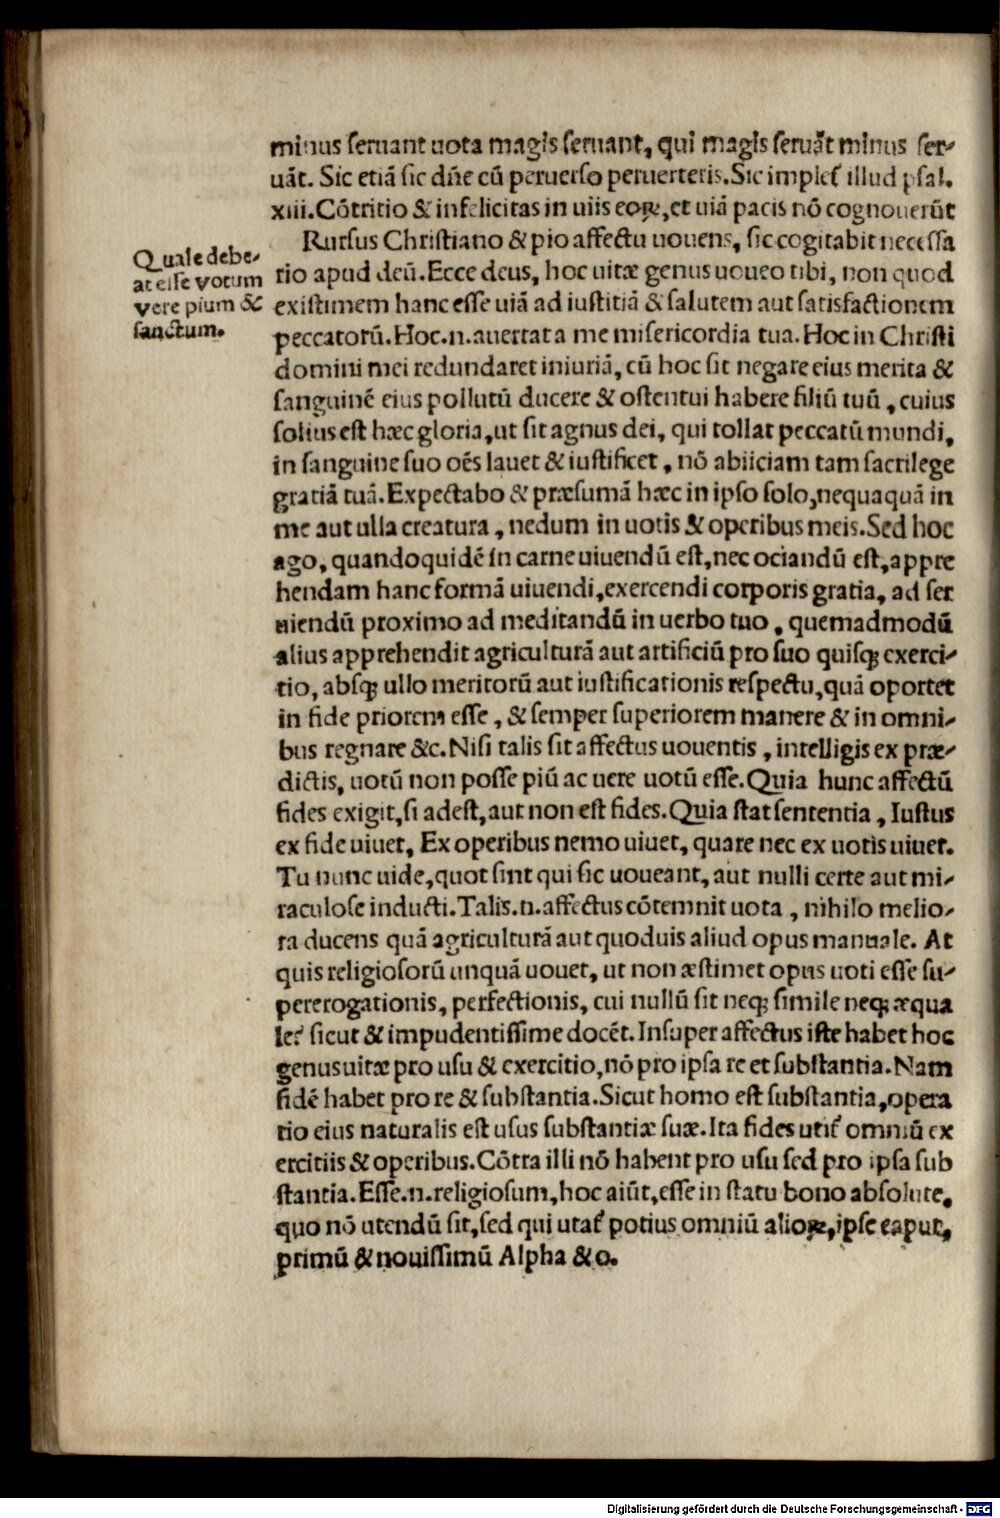 minus seruant uota magis seruant, qui magis seruāt minus ser-
uāt. Sic etiā sic dn̄e cū peruerso peruerteris. Sic implet᷑ illud psal.
xiii. Cōtritio & infelicitas in uiis eoꝝ, et uiā pacis nō cognouerūt
Rursus Christiano & pio affectu uouens, sic cogitabit necessa
Quale debe-
at esse votum
vere pium &
sanctum.
rio apud deū. Ecce deus, hoc uitæ genus uoueo tibi, non quod
existimem hanc esse uiā ad iustitiā & salutem aut satisfactionem
peccatorū. Hoc.n. auertat a me misericordia tua. Hoc in Christi
domini mei redundaret iniuriā, cū hoc sit negare eius merita &
sanguinē eius pollutū ducere & ostentui habere filiū tuū, cuius
solius est hæc gloria, ut sit agnus dei, qui tollat peccatū mundi,
in sanguine suo oēs lauet & iustificet, nō abiiciam tam sacrilege
gratiā tuā. Expectabo & præsumā hæc in ipso solo, nequaquā in
me aut ulla creatura, nedum in uotis & operibus meis. Sed hoc
ago, quandoquidē in carne uiuendū est, nec ociandū est, appre
hendam hanc formā uiuendi, exercendi corporis gratia, ad ser
uiendū proximo ad meditandū in uerbo tuo, quemadmodū
alius apprehendit agriculturā aut artificiū pro suo quisqꝫ exerci-
tio, absqꝫ ullo meritorū aut iustificationis respectu, quā oportet
in fide priorem esse, & semper superiorem manere & in omni-
bus regnare &c. Nisi talis sit affectus uouentis, intelligis ex præ-
dictis, uotū non posse piū ac uere uotū esse. Quia hunc affectū
fides exigit, si adest, aut non est fides. Quia stat sententia, Iustus
ex fide uiuet, Ex operibus nemo uiuet, quare nec ex uotis uiuet.
Tu nunc uide, quot sint qui sic uoueant, aut nulli certe aut mi-
raculose inducti. Talis.n. affectus cōtemnit uota, nihilo melio-
ra ducens quā agriculturā aut quoduis aliud opus manuale. At
quis religiosorū unquā uouet, ut non æstimet opus uoti esse su-
pererogationis, perfectionis, cui nullū sit neqꝫ simile neqꝫ æqua
let᷑ sicut & impudentissime docēt. Insuper affectus iste habet hoc
genus uitæ pro usu & exercitio, nō pro ipsa re et substantia. Nam
fidē habet pro re & substantia. Sicut homo est substantia, opera
tio eius naturalis est usus substantiæ suæ. Ita fides utit᷑ omniū ex
ercitiis & operibus. Cōtra illi nō habent pro usu sed pro ipsa sub
stantia. Esse.n. religiosum, hoc aiūt, esse in statu bono absolute,
quo nō utendū sit, sed qui utat᷑ potius omniū alioꝝ, ipse caput,
primū & nouissimū Alpha & o.
Digitalisierung gefördert durch die Deutsche Forschungsgemeinschaft - DFG